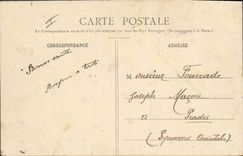 CARTE POSTALE
La Correspondance au recto n'est pas acceptée par tous les Pays Etrangers (Se renseigner à la Poste)
CORRESPONDANCE
ADRESSE
Bonne santé
Bonjour à tous
Monsieur Fourcade
Joseph Maçon
à Prades
(Pyrénées Orientales)